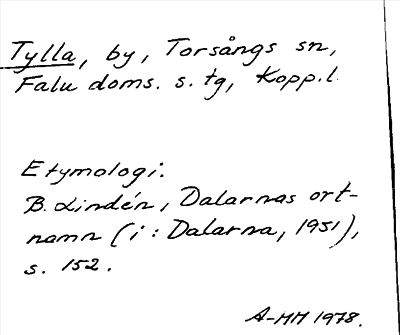 Tylla, by, Torsångs sn,
Falu doms. s. tg, Kopp.l.
Etymologi:
B. Lindén, Dalarnas ort-
namn (i: Dalarna, 1951),
s. 152.
A-MM 1978.